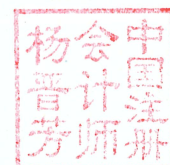 中国注册
会计师
杨晋芳